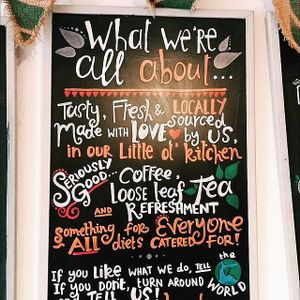 What we're
all about...
Tasty, Fresh & LOCALLY sourced
Made WITH LOVE by US,
in our Little ol' kitchen
SERIOUSLY GOOD.. Coffee,
loose leaf Tea
AND REFRESHMENT
Something for Everyone
ALL diets CATERED FOR!
If you Like WHAT WE DO, TELL the WORLD
If you Don't, TURN AROUND
and Tell US!